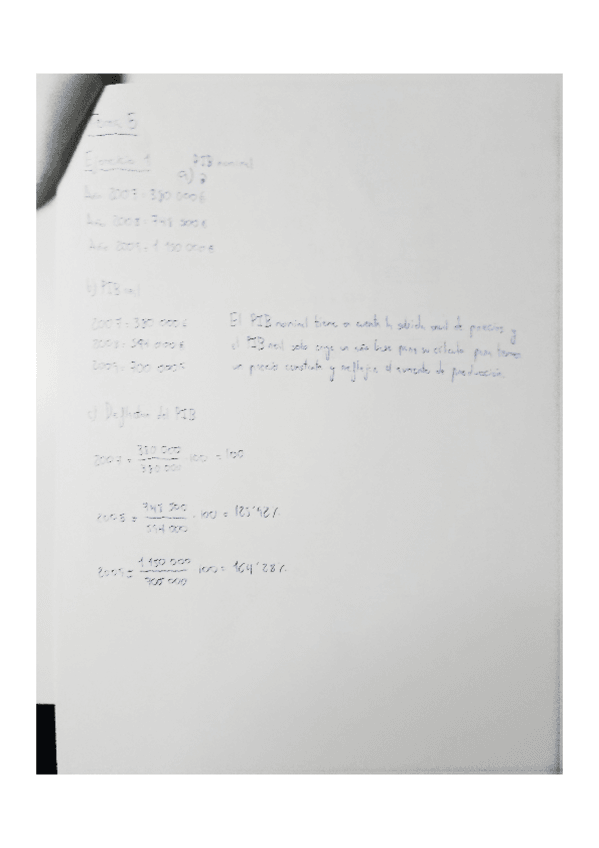 Tema 5
Ejercicio 1 PIB nominal
a)
Año 2007 = 380 000€
Año 2008 = 748 500€
Año 2009 = 1 150 000€
b) PIB real
2007 = 380 000€
2008 = 594 000€
2009 = 700 000€
El PIB nominal tiene en cuenta la subida anual de precios y
el PIB real solo coge un año base para su cálculo para tener
un precio constante y refleja el aumento de producción.
c) Deflactor del PIB
2007 = 380 000 / 380 000 · 100 = 100
2008 = 748 500 / 594 000 · 100 =
2009 = 1 150 000 / 700 000 · 100 = 164'28%